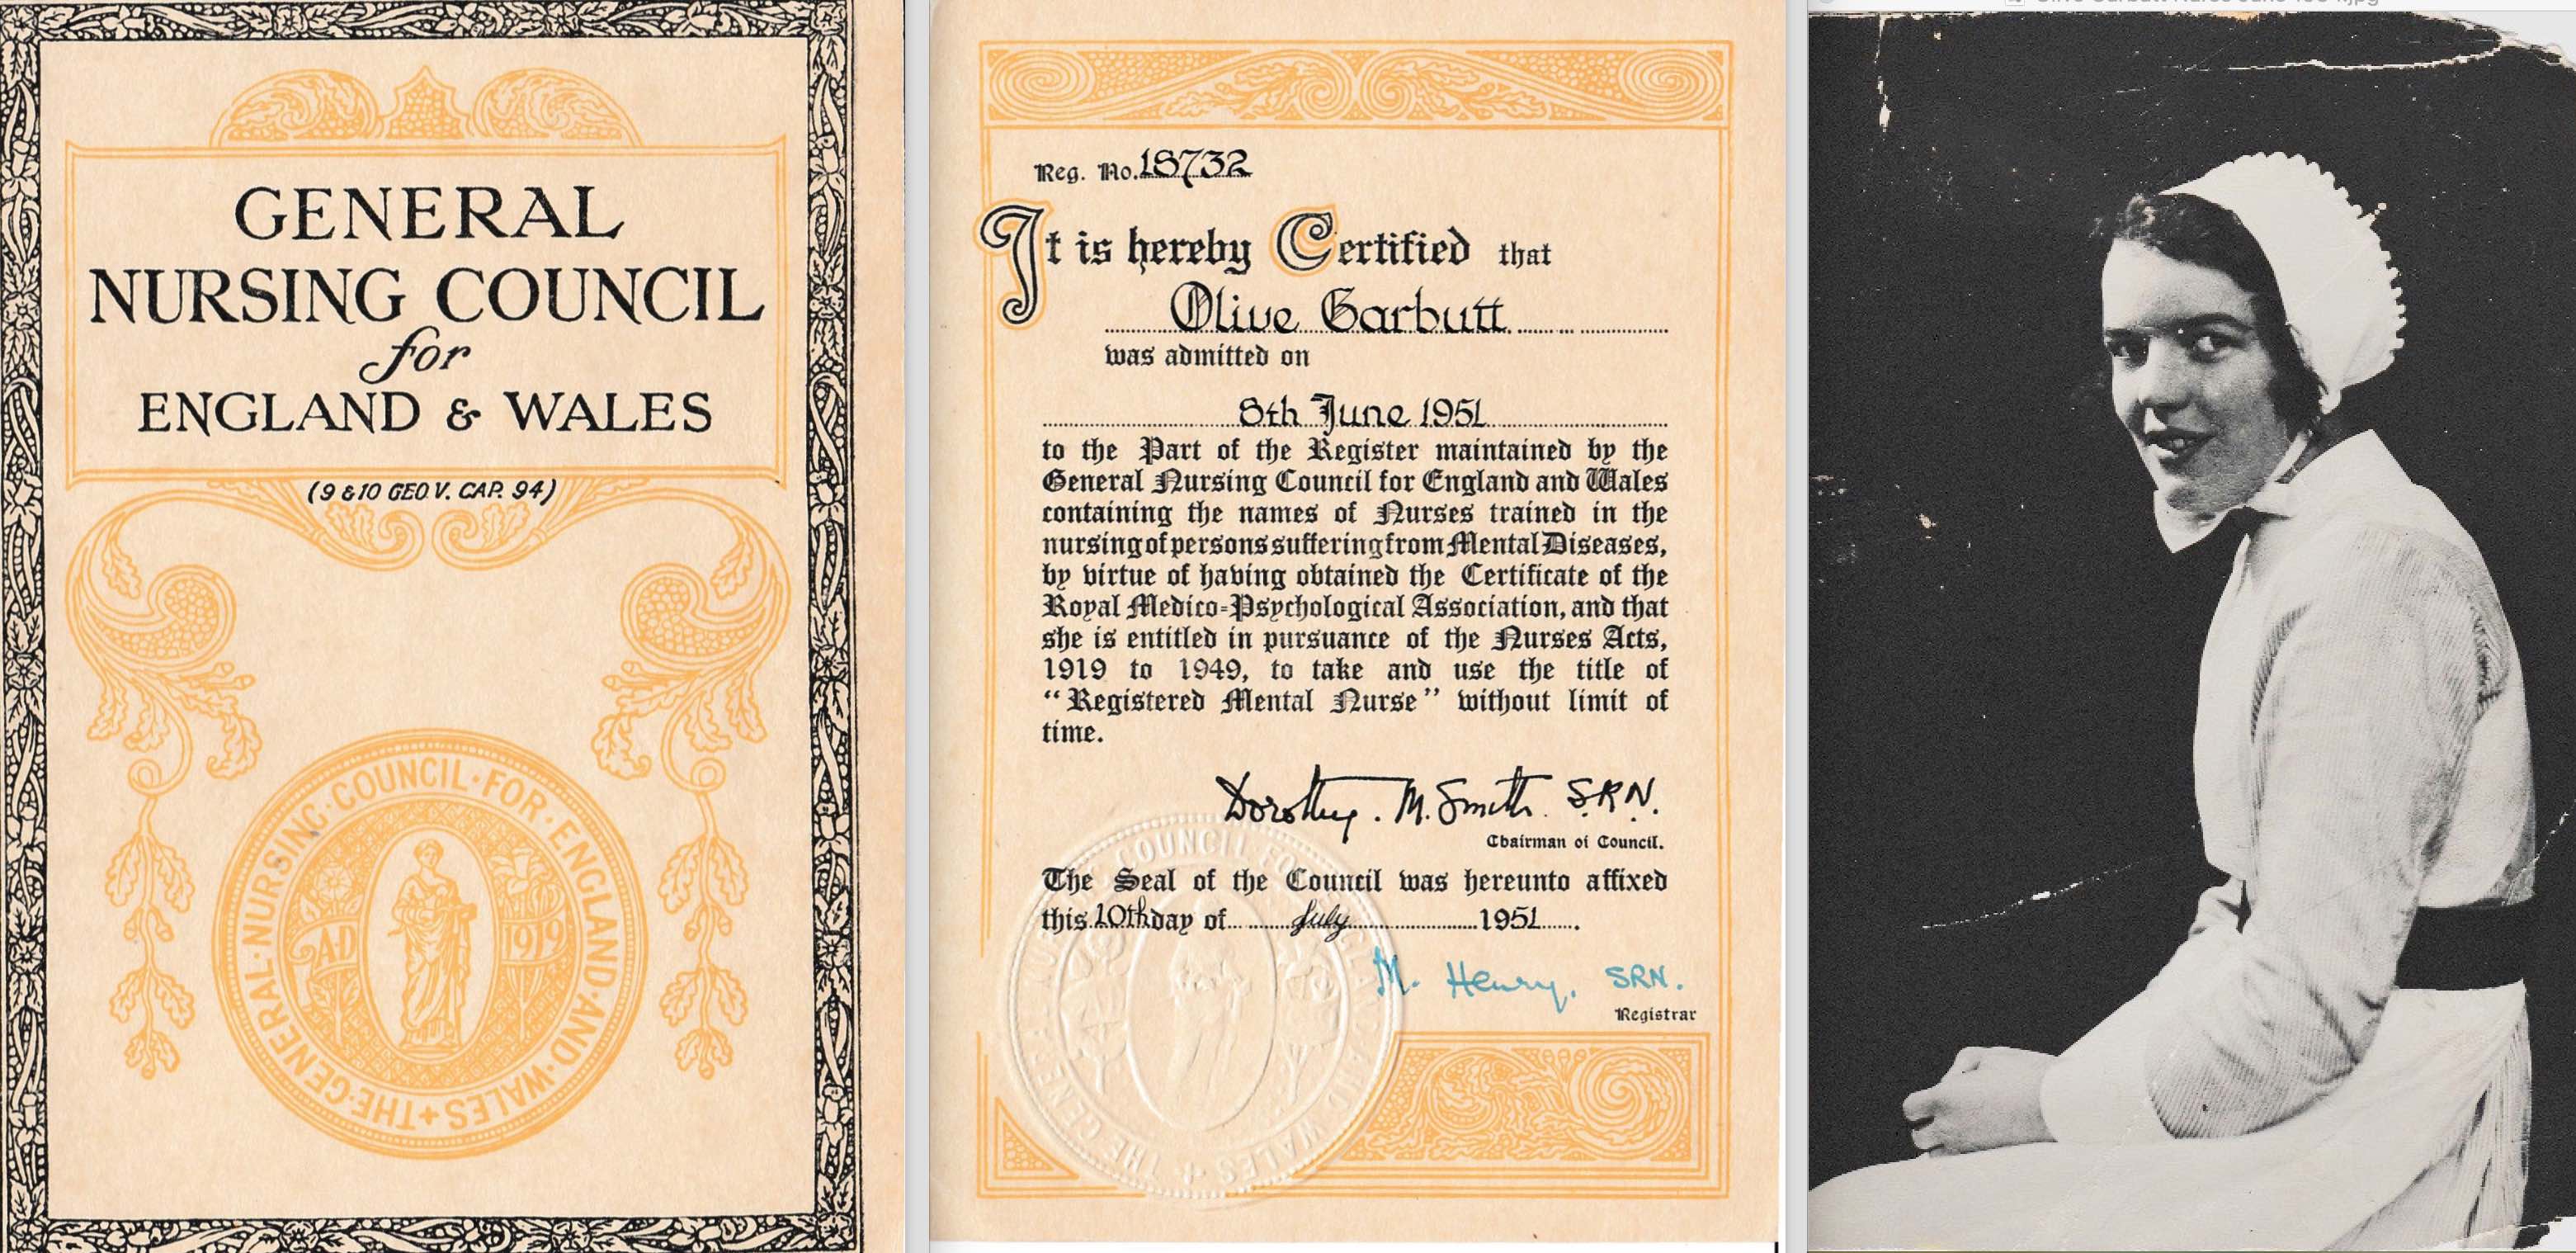 GENERAL
NURSING COUNCIL
for
ENGLAND & WALES
(9 & 10 GEO V. CAP. 94)
THE·GENERAL·NURSING·COUNCIL·FOR·ENGLAND·AND·WALES+
A·D 1919
Reg. No. 18732
It is hereby Certified that
Olive Garbutt
was admitted on
8th June 1951
to the Part of the Register maintained by the
General Nursing Council for England and Wales
containing the names of Nurses trained in the
nursing of persons suffering from Mental Diseases,
by virtue of having obtained the Certificate of the
Royal Medico-Psychological Association, and that
she is entitled in pursuance of the Nurses Acts,
1919 to 1949, to take and use the title of
"Registered Mental Nurse" without limit of
time.
Dorothy. M. Smith. S.R.N.
Chairman of Council.
The Seal of the Council was hereunto affixed
this 10th day of July 1951.
M. Henry, SRN.
Registrar